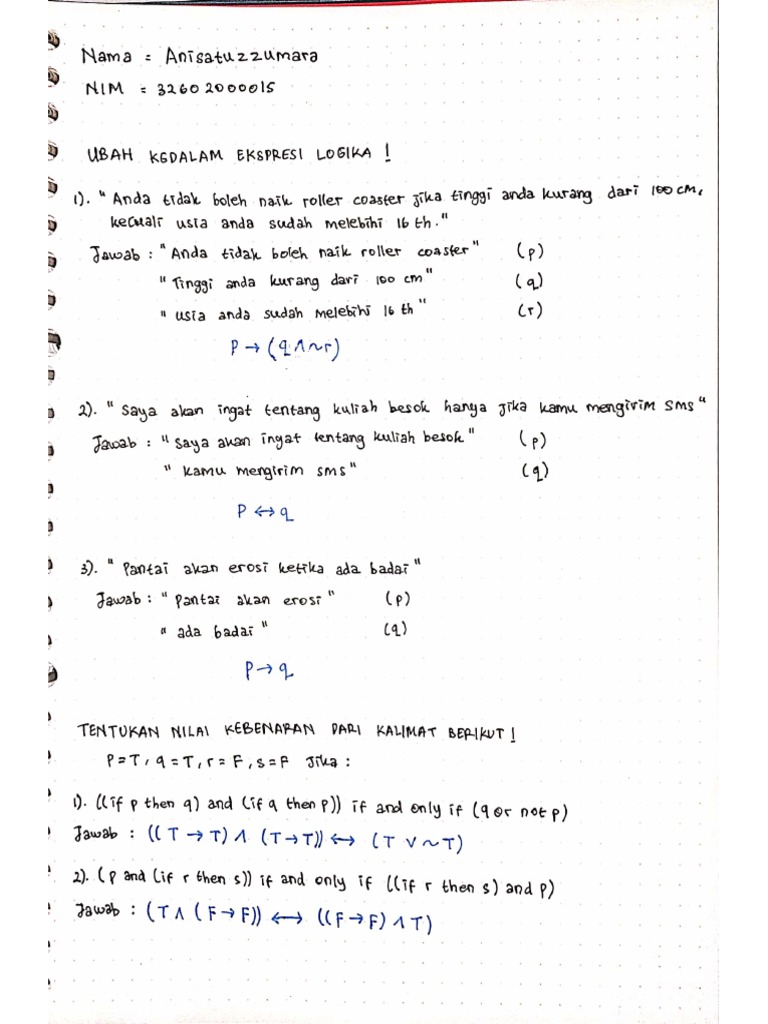 Nama = Anisatuzzumara
NIM = 32602000015
UBAH KEDALAM EKSPRESI LOGIKA !
1). "Anda tidak boleh naik roller coaster jika tinggi anda kurang dari 100 cm,
kecuali usia anda sudah melebihi 16 th."
Jawab : "Anda tidak boleh naik roller coaster" (p)
"Tinggi anda kurang dari 100 cm" (q)
"usia anda sudah melebihi 16 th" (r)
P → (q ∧ ~r)
2). "Saya akan ingat tentang kuliah besok hanya jika kamu mengirim SMS"
Jawab : "Saya akan ingat tentang kuliah besok" (p)
"kamu mengirim sms" (q)
P ↔ q
3). "Pantai akan erosi ketika ada badai"
Jawab : "Pantai akan erosi" (p)
"ada badai" (q)
P → q
TENTUKAN NILAI KEBENARAN DARI KALIMAT BERIKUT !
P = T, q = T, r = F, s = F jika :
1). ((if p then q) and (if q then p)) if and only if (q or not p)
Jawab : ((T → T) ∧ (T → T)) ↔ (T ∨ ~T)
2). (p and (if r then s)) if and only if ((if r then s) and p)
Jawab : (T ∧ (F → F)) ↔ ((F → F) ∧ T)